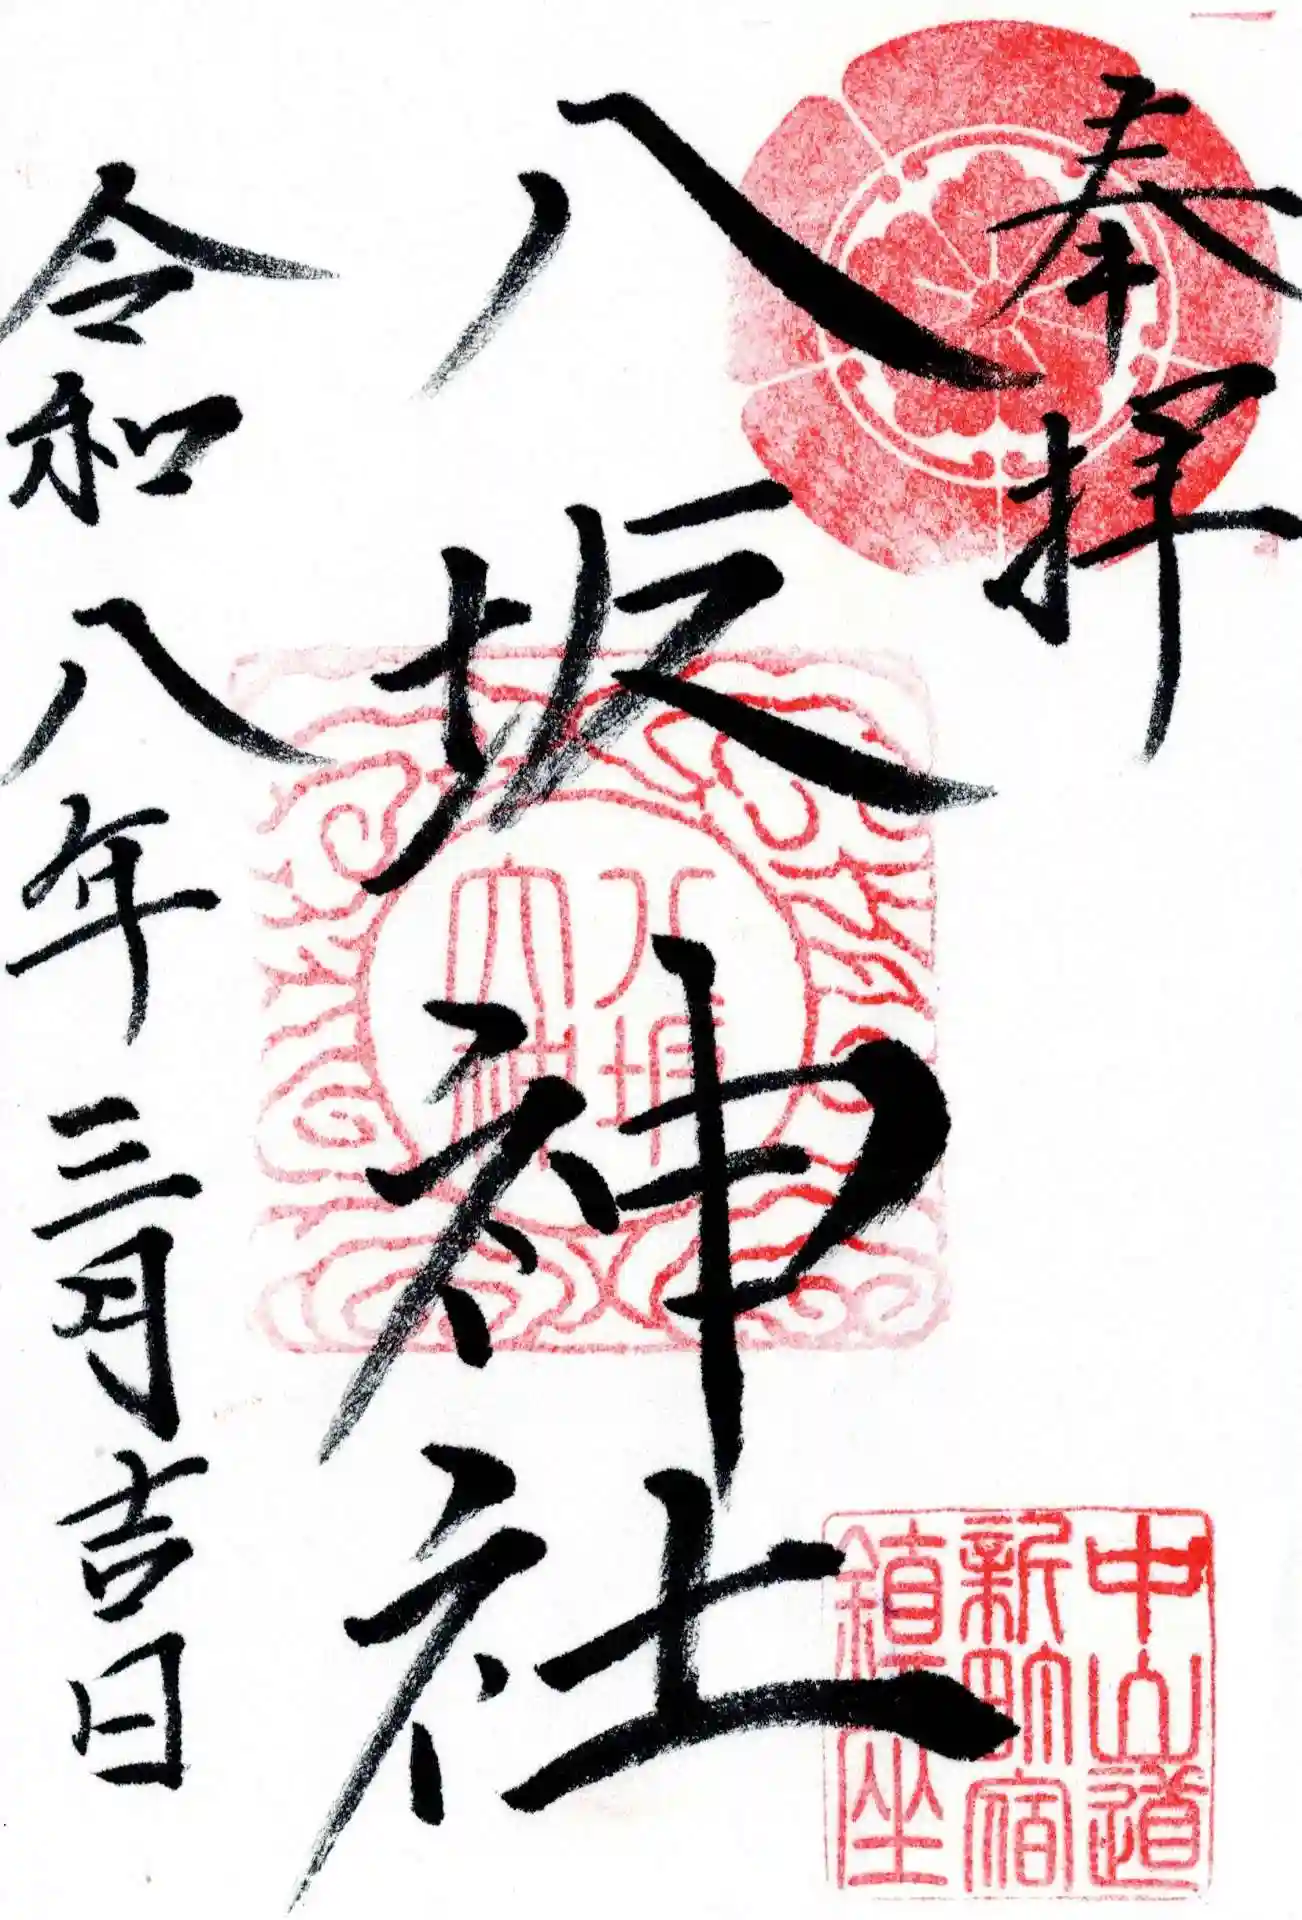 奉拝
八坂神社
令和八年三月吉日
八坂
大神
中山道
新町宿
鎮座